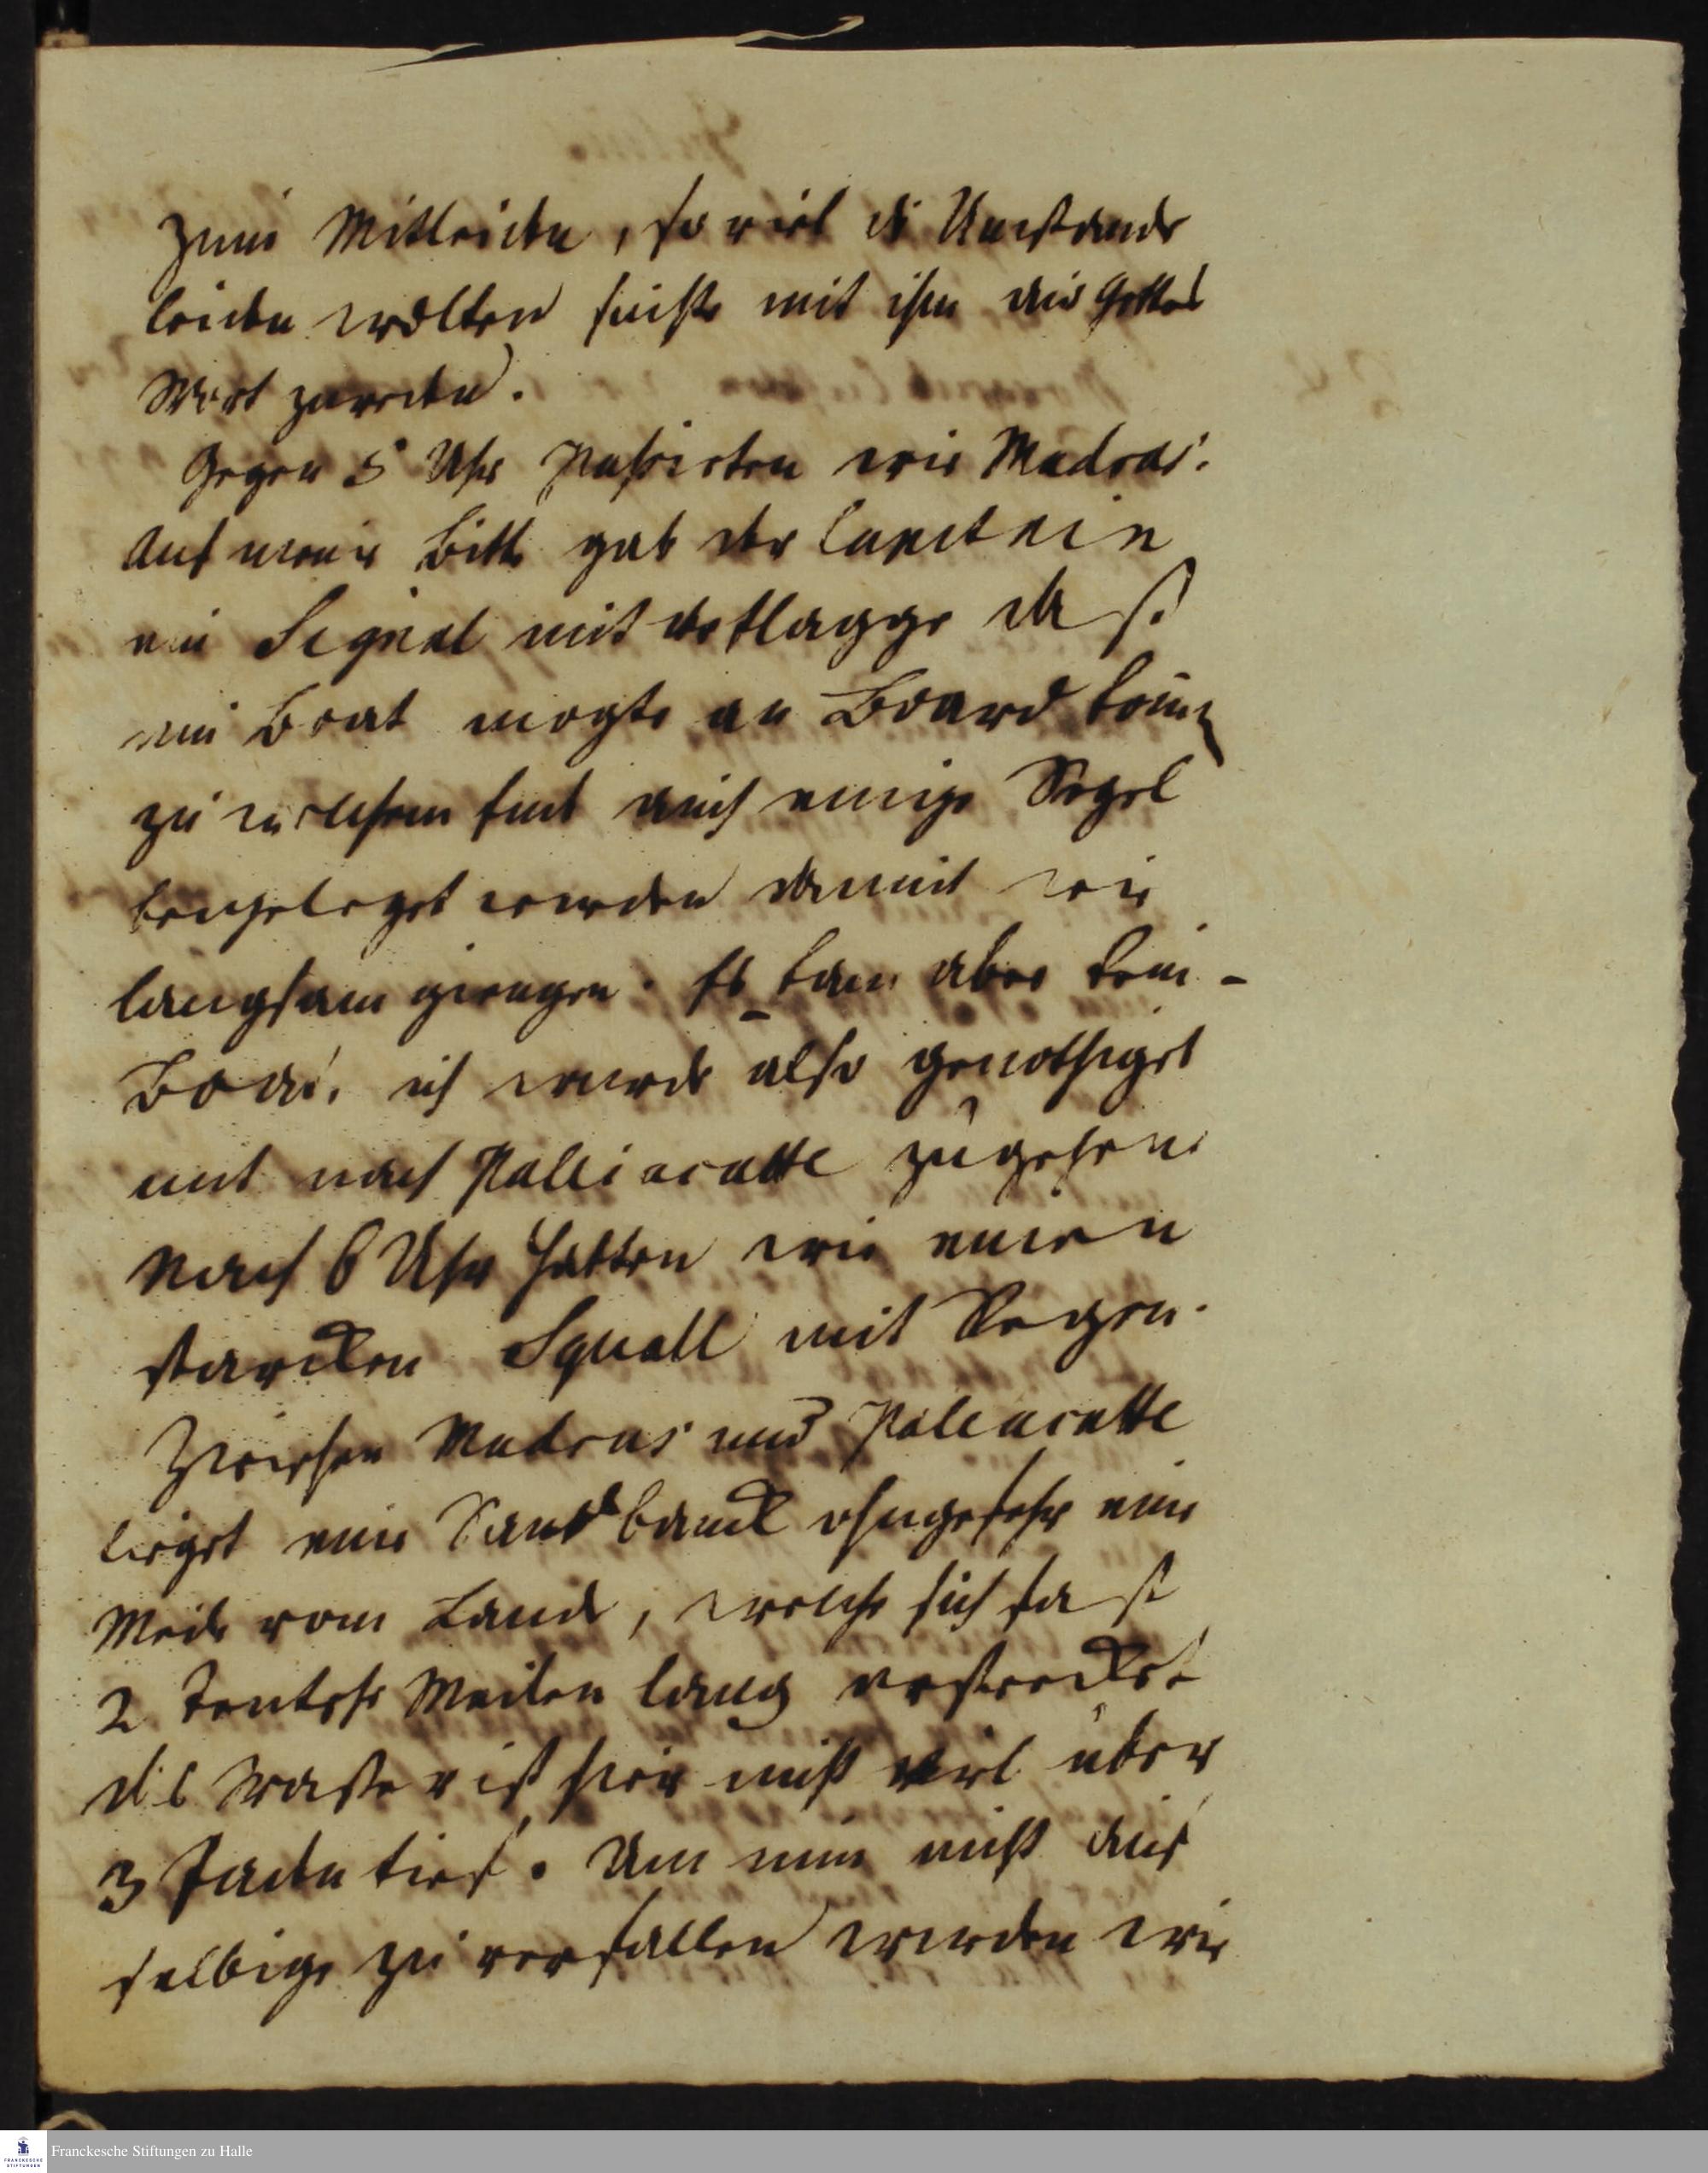 zum Mitleiden, so viel die Umstände
leiden wolten suchte mit ihm aus Gottes
Wort zureden.
Gegen 5 Uhr Passirten wir Madras.
Auf meine Bitte gab der Capitain
ein Signal mit der Flagge daß
ein Boat mogte an Board komen
zu welchem End auch einige Segel
beygeleget wurden damit wir
langsam giengen. Es kam aber kein
Boat. ich wurde also genothiget
mit nach Palliacatte zugehen.
Nach 6 Uhr hatten wir einen
starcken Squall mit Regen.
Zwischen Madras und Paleacatte
lieget eine Sandbanck ohngefehr eine
Meile vom Lande, welche sich fast
2 Teutsche Meilen lang erstrecket
das Waßer ist hier nicht viel über
3 Faden tief. Um nun nicht auf
selbige zu verfallen wurden wir
Franckesche Stiftungen zu Halle